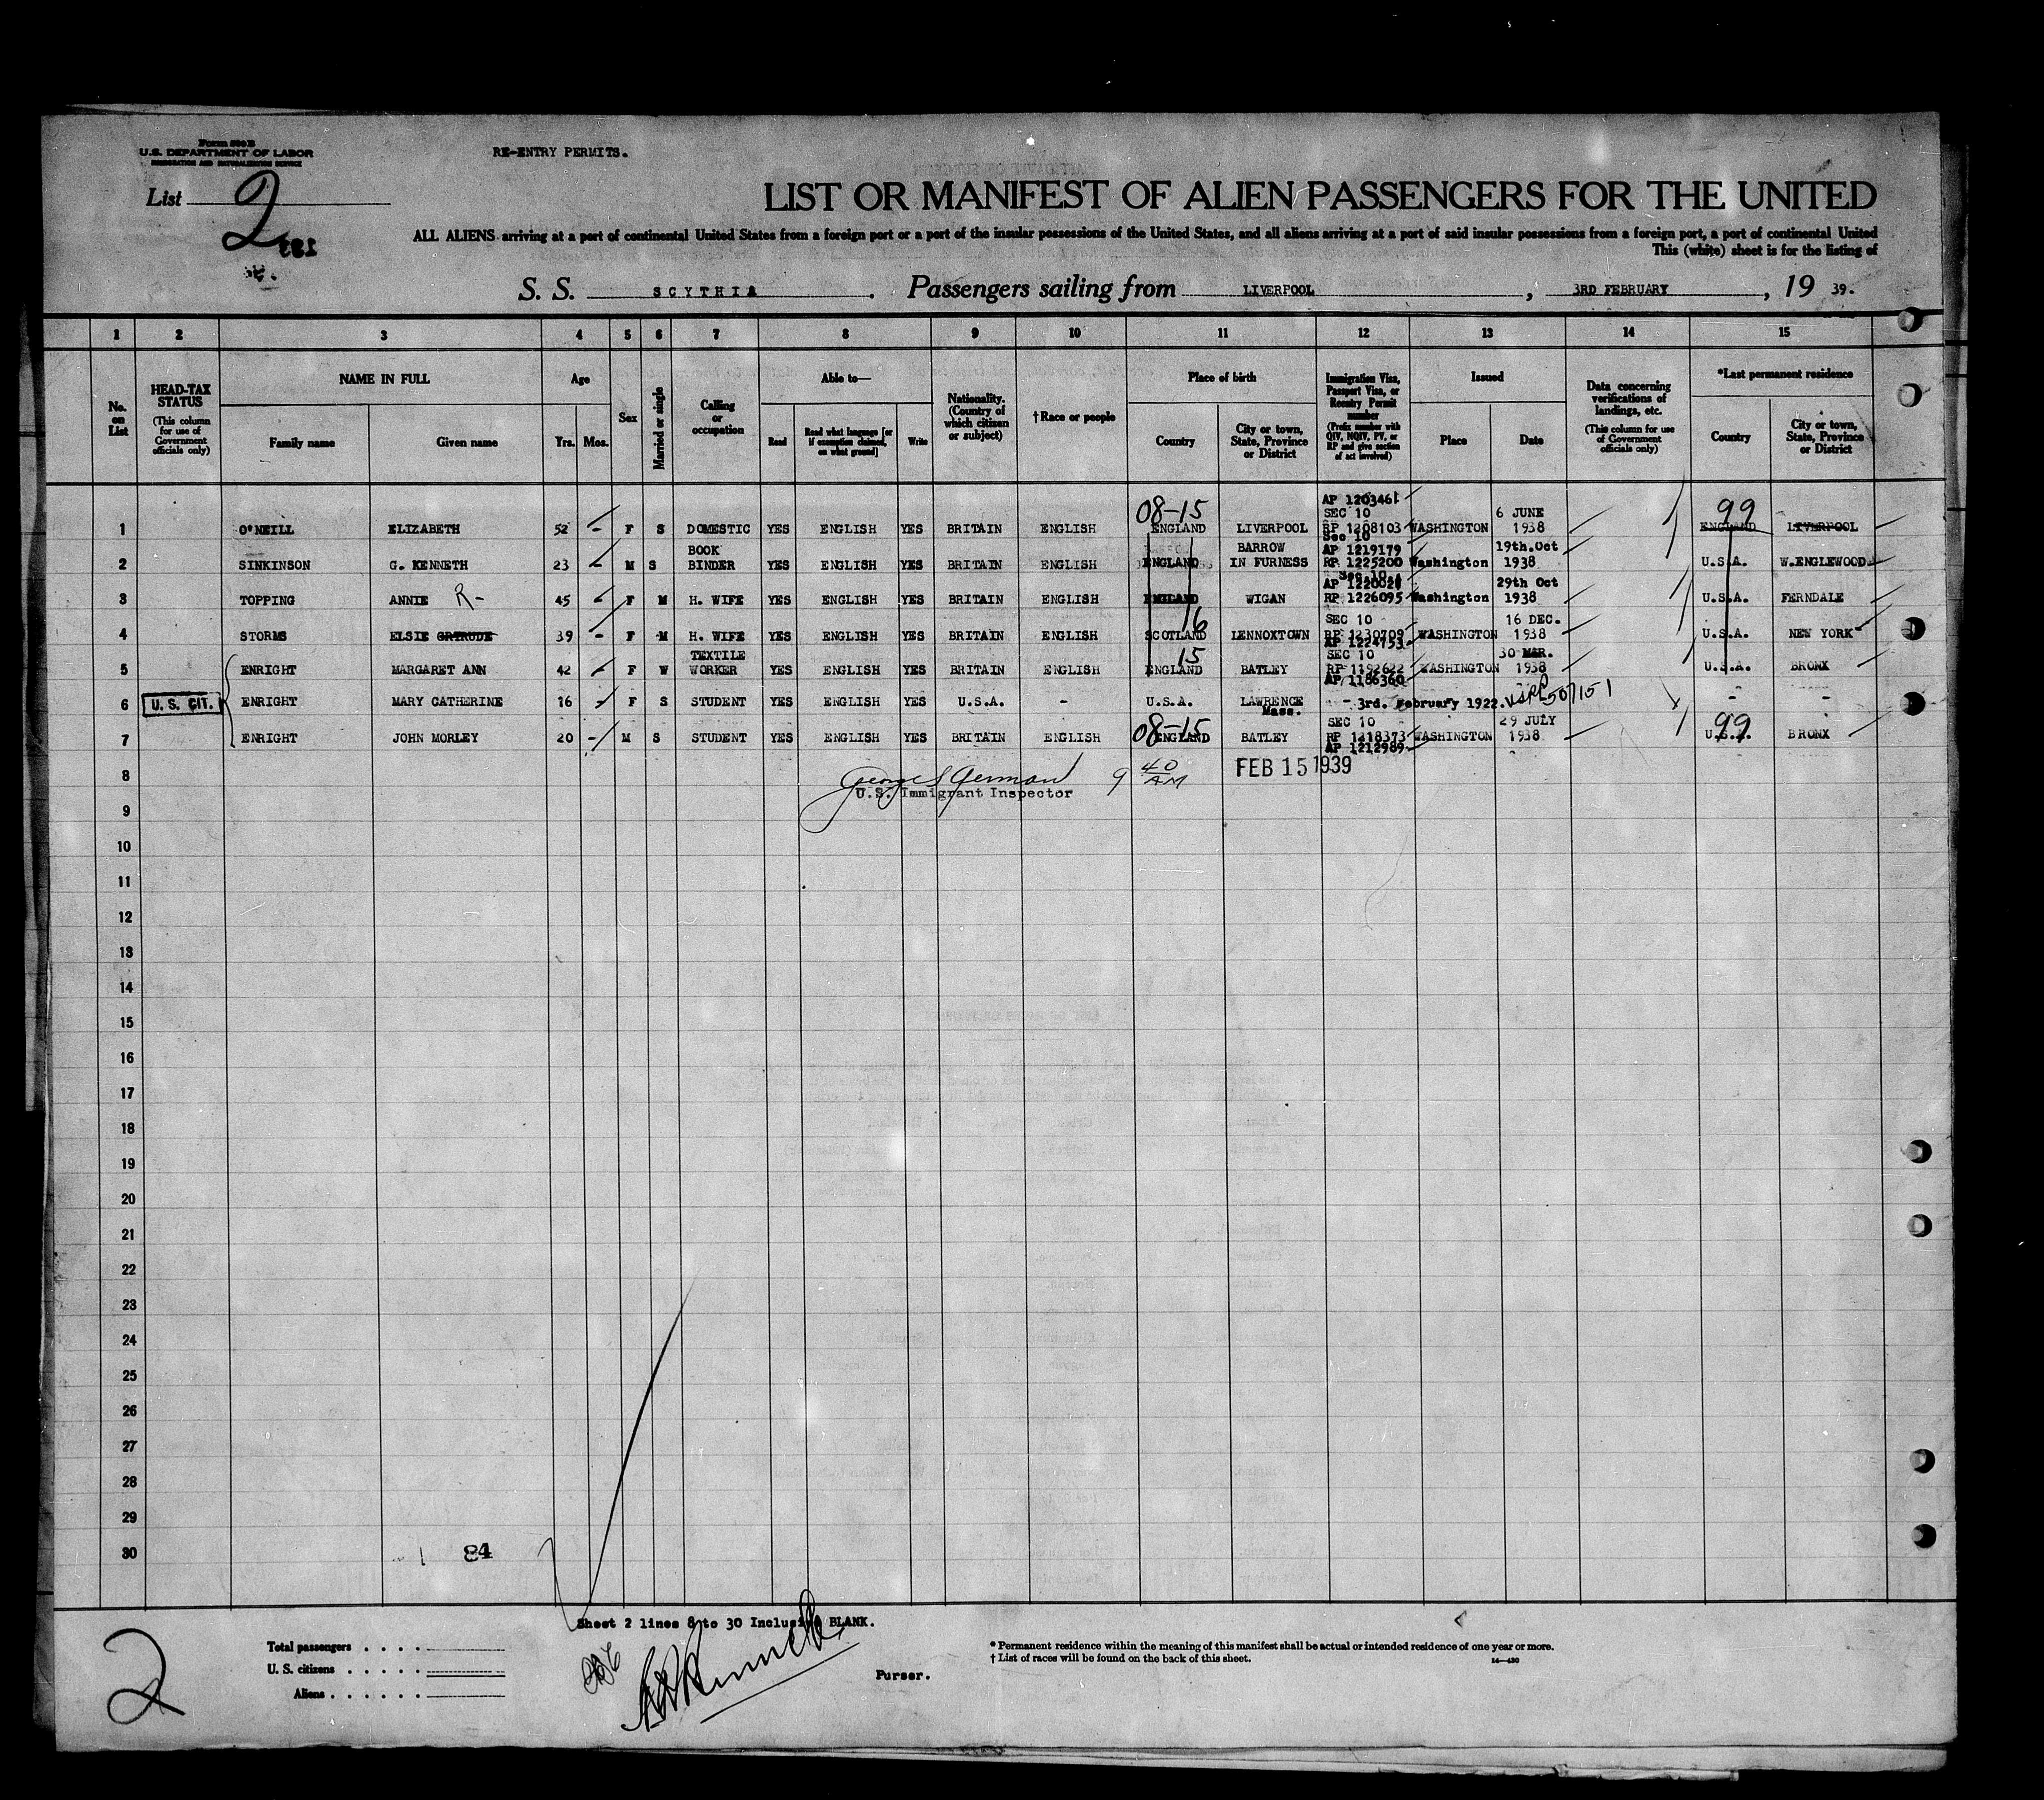 Form 500 B
U.S. DEPARTMENT OF LABOR
IMMIGRATION AND NATURALIZATION SERVICE
RE-ENTRY PERMITS.
List 2
LIST OR MANIFEST OF ALIEN PASSENGERS FOR THE UNITED
ALL ALIENS arriving at a port of continental United States from a foreign port or a port of the insular possessions of the United States, and all aliens arriving at a port of said insular possessions from a foreign port, a port of continental United
This (white) sheet is for the listing of
S. S. SCYTHIA. Passengers sailing from LIVERPOOL, 3RD FEBRUARY, 19 39.
1 2 3 4 5 6 7 8 9 10 11 12 13 14 15
No. on List
HEAD-TAX STATUS (This column for use of Government officials only)
NAME IN FULL Family name Given name
Age Yrs. Mos.
Sex
Married or single
Calling or occupation
Able to— Read Read what language [or if exemption claimed, on what ground] Write
Nationality. (Country of which citizen or subject)
†Race or people
Place of birth Country City or town, State, Province or District
Immigration Visa, Passport Visa, or Reentry Permit number (Prefix number with QIV, NQIV, PV, or RP and give section of act involved)
Issued Place Date
Data concerning verifications of landings, etc. (This column for use of Government officials only)
*Last permanent residence Country City or town, State, Province or District
08-15 AP 1203461 SEC 10 6 JUNE 99
1 O'NEILL ELIZABETH 52 - F S DOMESTIC YES ENGLISH YES BRITAIN ENGLISH ENGLAND LIVERPOOL RP 1208103 WASHINGTON 1938 ENGLAND LIVERPOOL
BOOK BARROW Sec 10 AP 1219179 19th.Oct
2 SINKINSON G. KENNETH 23 - M S BINDER YES ENGLISH YES BRITAIN ENGLISH ENGLAND IN FURNESS RP 1225200 Washington 1938 U.S.A. W.ENGLEWOOD
Sec 10. AP 1220021 29th Oct
3 TOPPING ANNIE R- 45 - F M H. WIFE YES ENGLISH YES BRITAIN ENGLISH ENGLAND WIGAN RP 1226095 Washington 1938 U.S.A. FERNDALE
16 SEC 10 16 DEC.
4 STORMS ELSIE GRTRUDE 39 - F M H. WIFE YES ENGLISH YES BRITAIN ENGLISH SCOTLAND LENNOXTOWN RP 1230709 WASHINGTON 1938 U.S.A. NEW YORK
AP 1224753
TEXTILE 15 SEC 10 30 MAR.
5 ENRIGHT MARGARET ANN 42 - F W WORKER YES ENGLISH YES BRITAIN ENGLISH ENGLAND BATLEY RP 1192622 WASHINGTON 1938 U.S.A. BRONX
AP 1186360
6 U. S. CIT. ENRIGHT MARY CATHERINE 16 - F S STUDENT YES ENGLISH YES U.S.A. - U.S.A. LAWRENCE Mass. - 3rd. February 1922. USPP 507151 - -
08-15 SEC 10 29 JULY 99
7 ENRIGHT JOHN MORLEY 20 - M S STUDENT YES ENGLISH YES BRITAIN ENGLISH ENGLAND BATLEY RP 1218373 WASHINGTON 1938 U.S.A. BRONX
AP 1212989
8 George S German 9 40 AM FEB 15 1939
U.S. Immigrant Inspector
9
10
11
12
13
14
15
16
17
18
19
20
21
22
23
24
25
26
27
28
29
30
84
Sheet 2 lines 8 to 30 Inclusive BLANK.
2
Total passengers . . . .
U. S. citizens . . . . .
Aliens . . . . . .
Purser.
* Permanent residence within the meaning of this manifest shall be actual or intended residence of one year or more.
† List of races will be found on the back of this sheet.
14—430